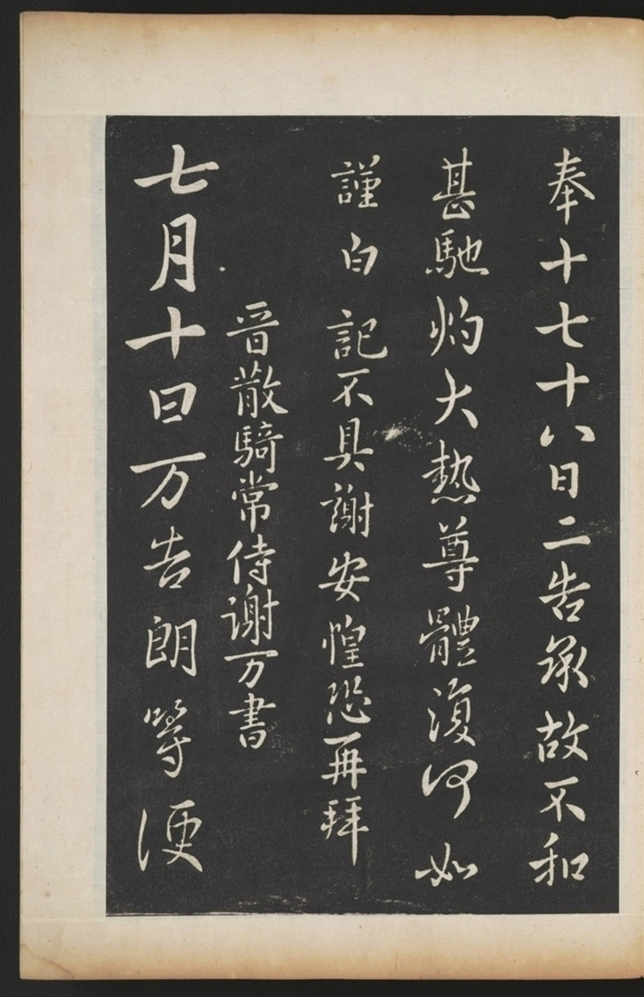 奉十七十八日二告承故不和
甚馳灼大熱尊體復何如
謹白記不具謝安惶恐再拜
晋散騎常侍謝万書
七月十日万告朗等便